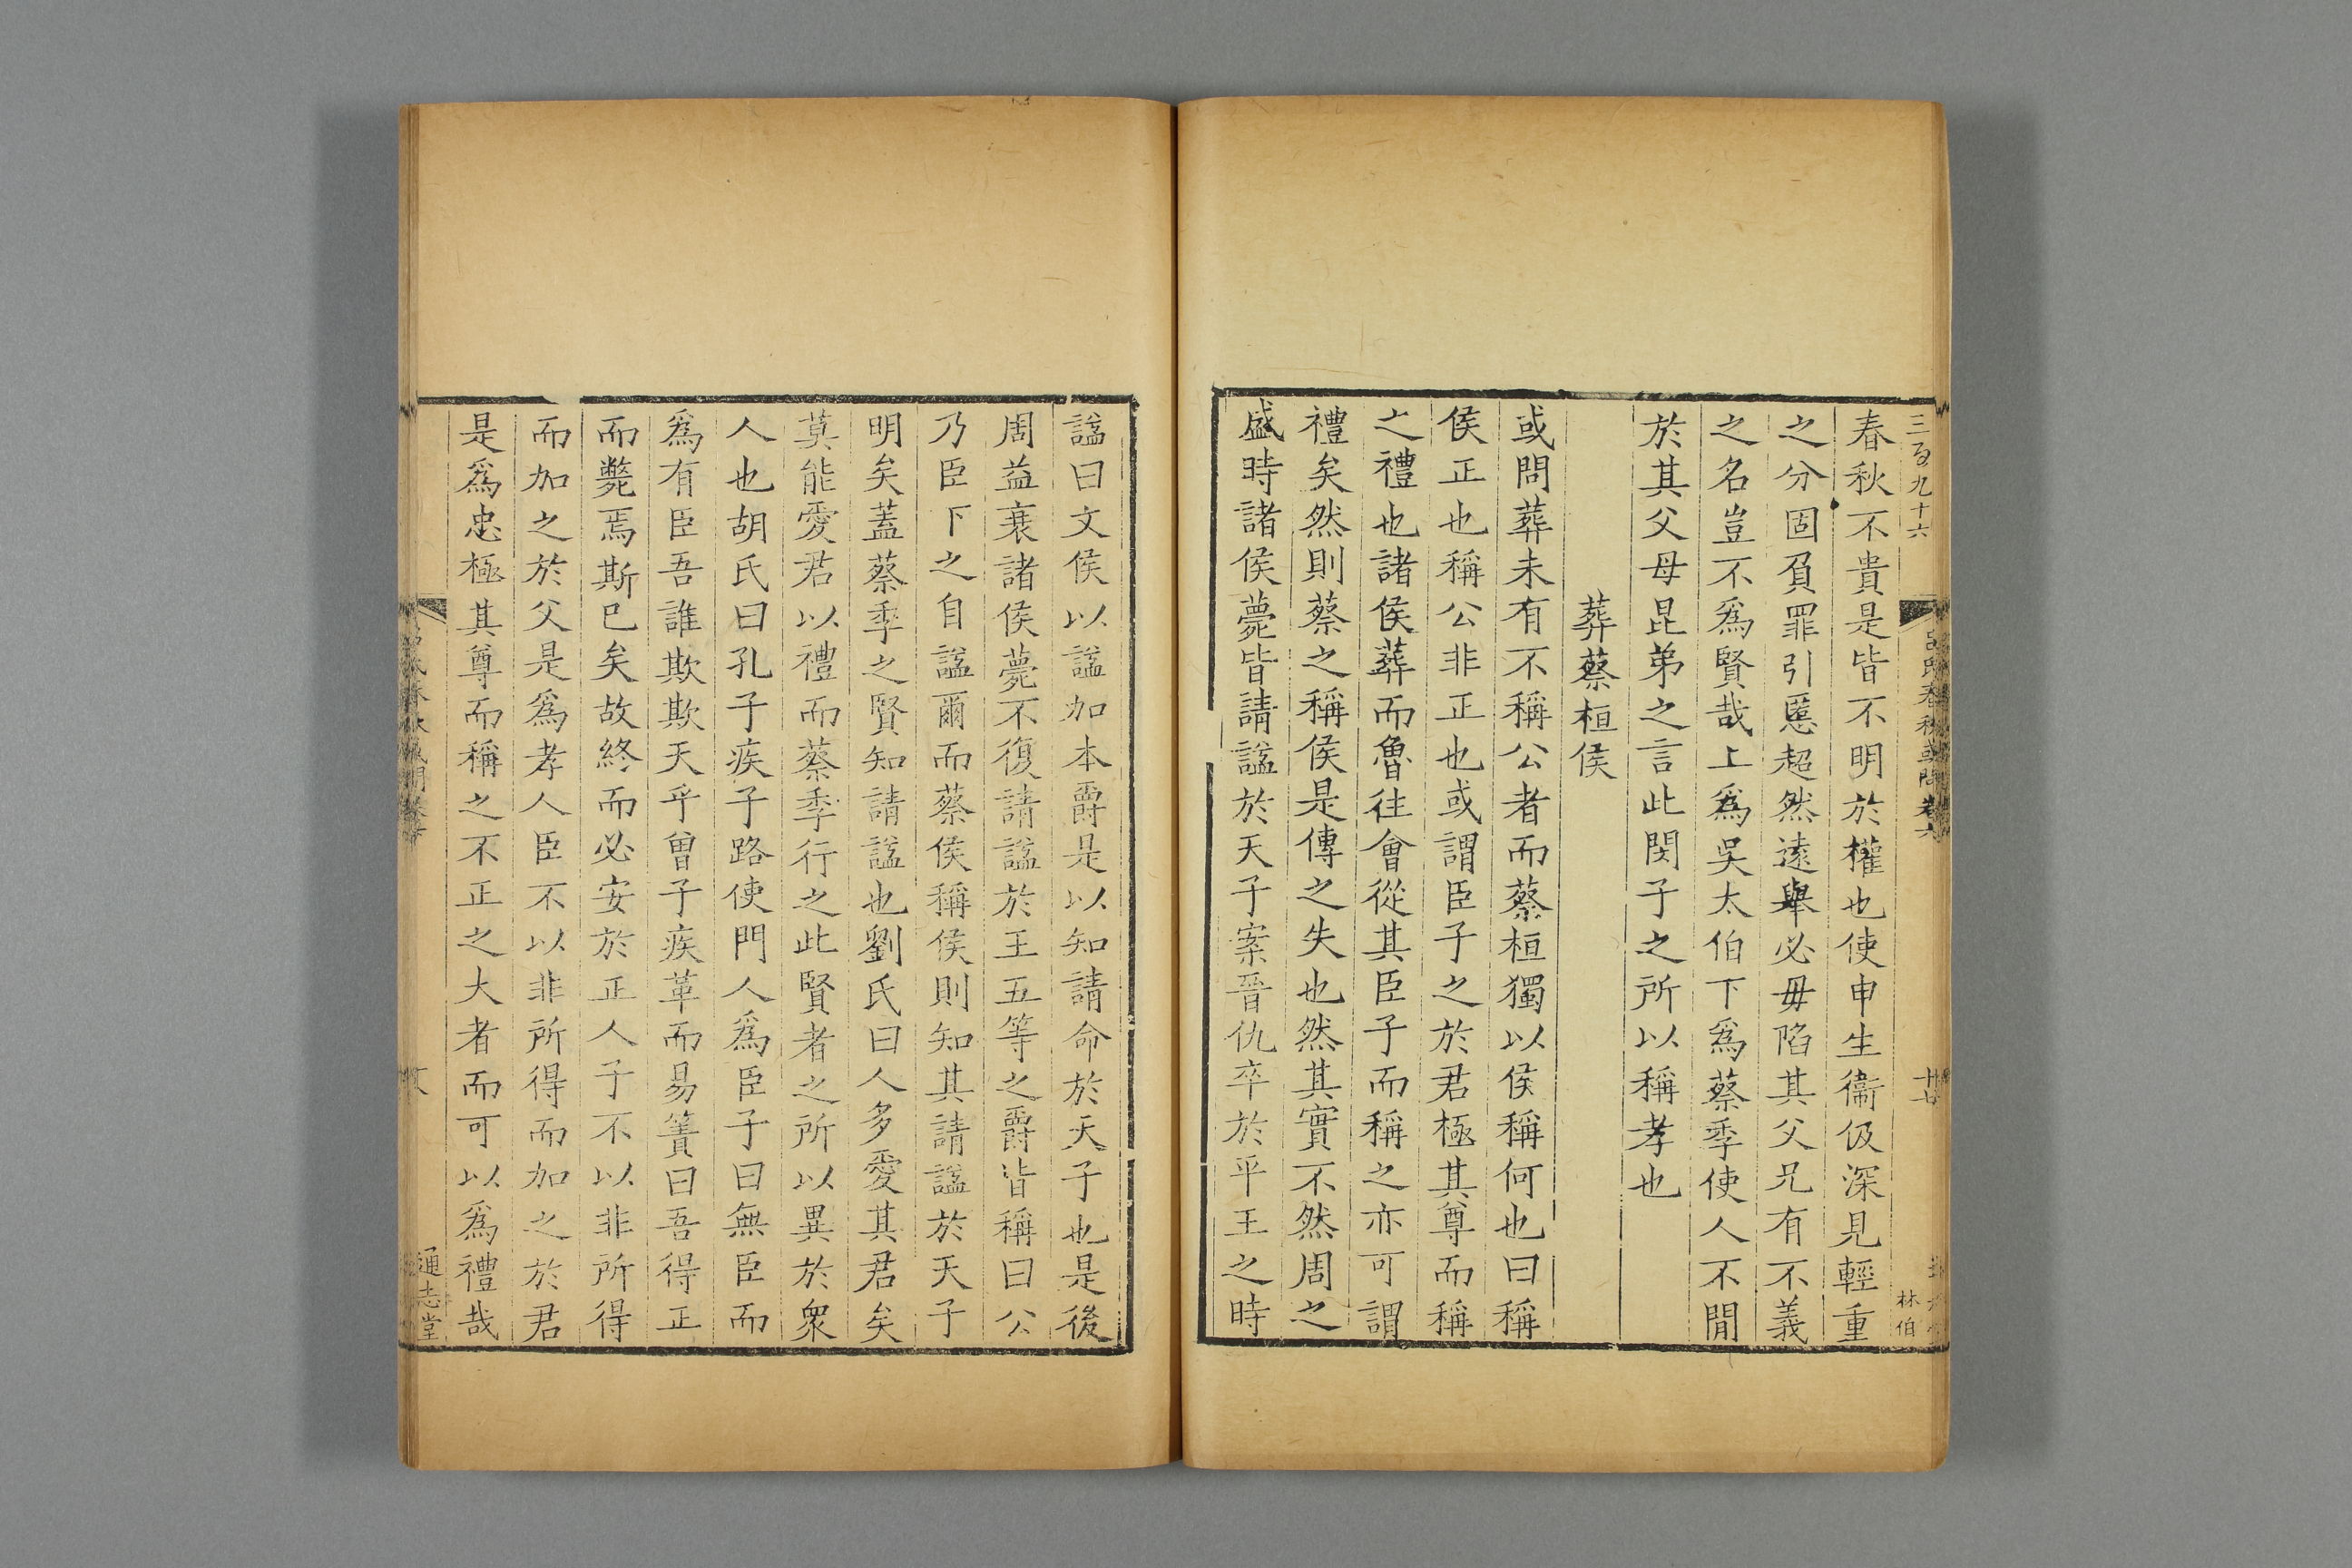 三百九十六
呂氏春秋或問卷六
林伯
春秋不貴是皆不明於權也使申生衞伋深見輕重
之分固負罪引慝超然遠舉必毋陷其父兄有不義
之名豈不爲賢哉上爲吳太伯下爲蔡季使人不閒
於其父母昆弟之言此閔子之所以稱孝也
葬蔡桓侯
或問葬未有不稱公者而蔡桓獨以侯稱何也曰稱
侯正也稱公非正也或謂臣子之於君極其尊而稱
之禮也諸侯葬而魯往會從其臣子而稱之亦可謂
禮矣然則蔡之稱侯是傳之失也然其實不然周之
盛時諸侯薨皆請諡於天子案晉仇卒於平王之時
諡曰文侯以諡加本爵是以知請命於天子也是後
周益衰諸侯薨不復請諡於王五等之爵皆稱曰公
乃臣下之自諡爾而蔡侯稱侯則知其請諡於天子
明矣蓋蔡季之賢知請諡也劉氏曰人多愛其君矣
莫能愛君以禮而蔡季行之此賢者之所以異於衆
人也胡氏曰孔子疾子路使門人爲臣子曰無臣而
爲有臣吾誰欺欺天乎曾子疾革而易簀曰吾得正
而斃焉斯已矣故終而必安於正人子不以非所得
而加之於父是爲孝人臣不以非所得而加之於君
是爲忠極其尊而稱之不正之大者而可以爲禮哉
通志堂